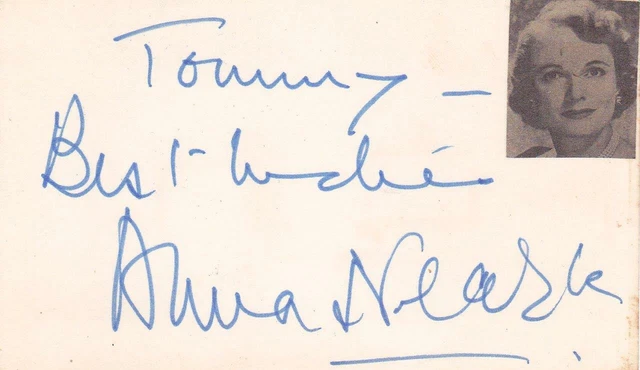 Tommy –
Best Wishes
Anna Neagle